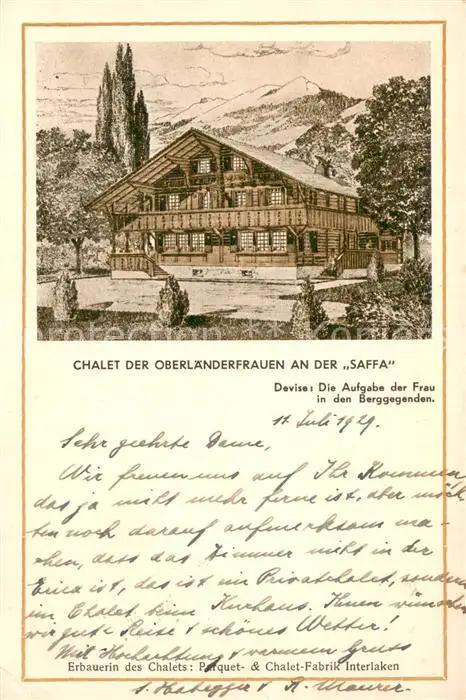 CHALET DER OBERLÄNDERFRAUEN AN DER „SAFFA"
Devise: Die Aufgabe der Frau
in den Berggegenden.
11. Juli 1929.
Sehr geehrte Dame,
Wir freuen uns auf Ihr Kommen
das ja nicht mehr ferne ist, aber möch
ten noch darauf aufmerksam ma-
chen, dass das Zimmer nicht in der
Erica ist, das ist ein Privatchalet, sondern
im Chalet beim Kurhaus. Ihnen wünschen
wir gute Reise & schönes Wetter!
Mit Hochachtung & warmem Gruss
Erbauerin des Chalets: Parquet- & Chalet-Fabrik Interlaken
S. Habegger & R. Maurer.